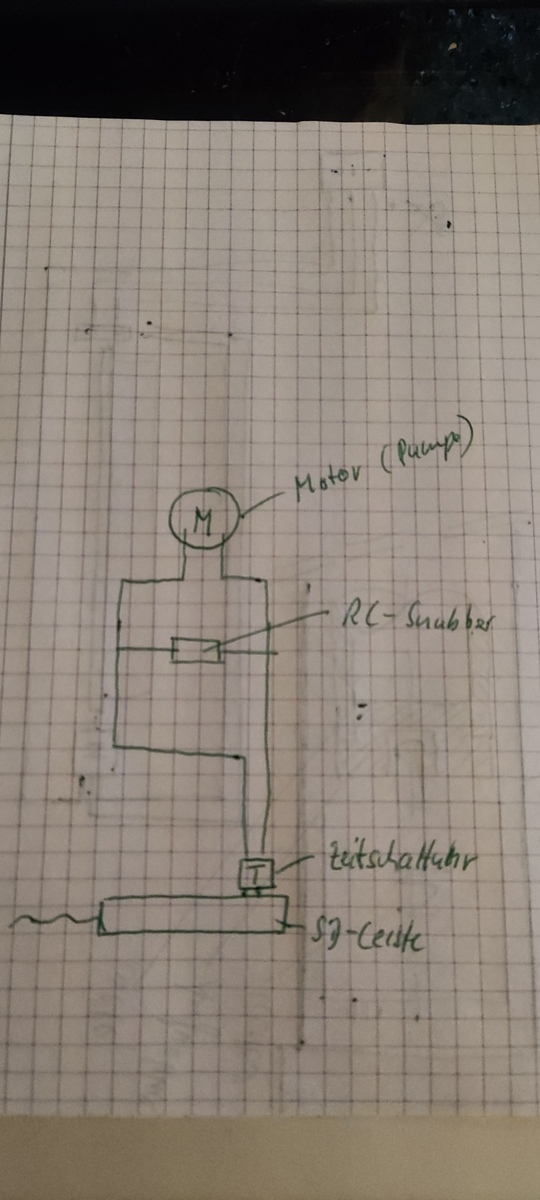 Motor (Pumpe)
M
RC-Snubber
Zeitschaltuhr
T
SD-Leiste